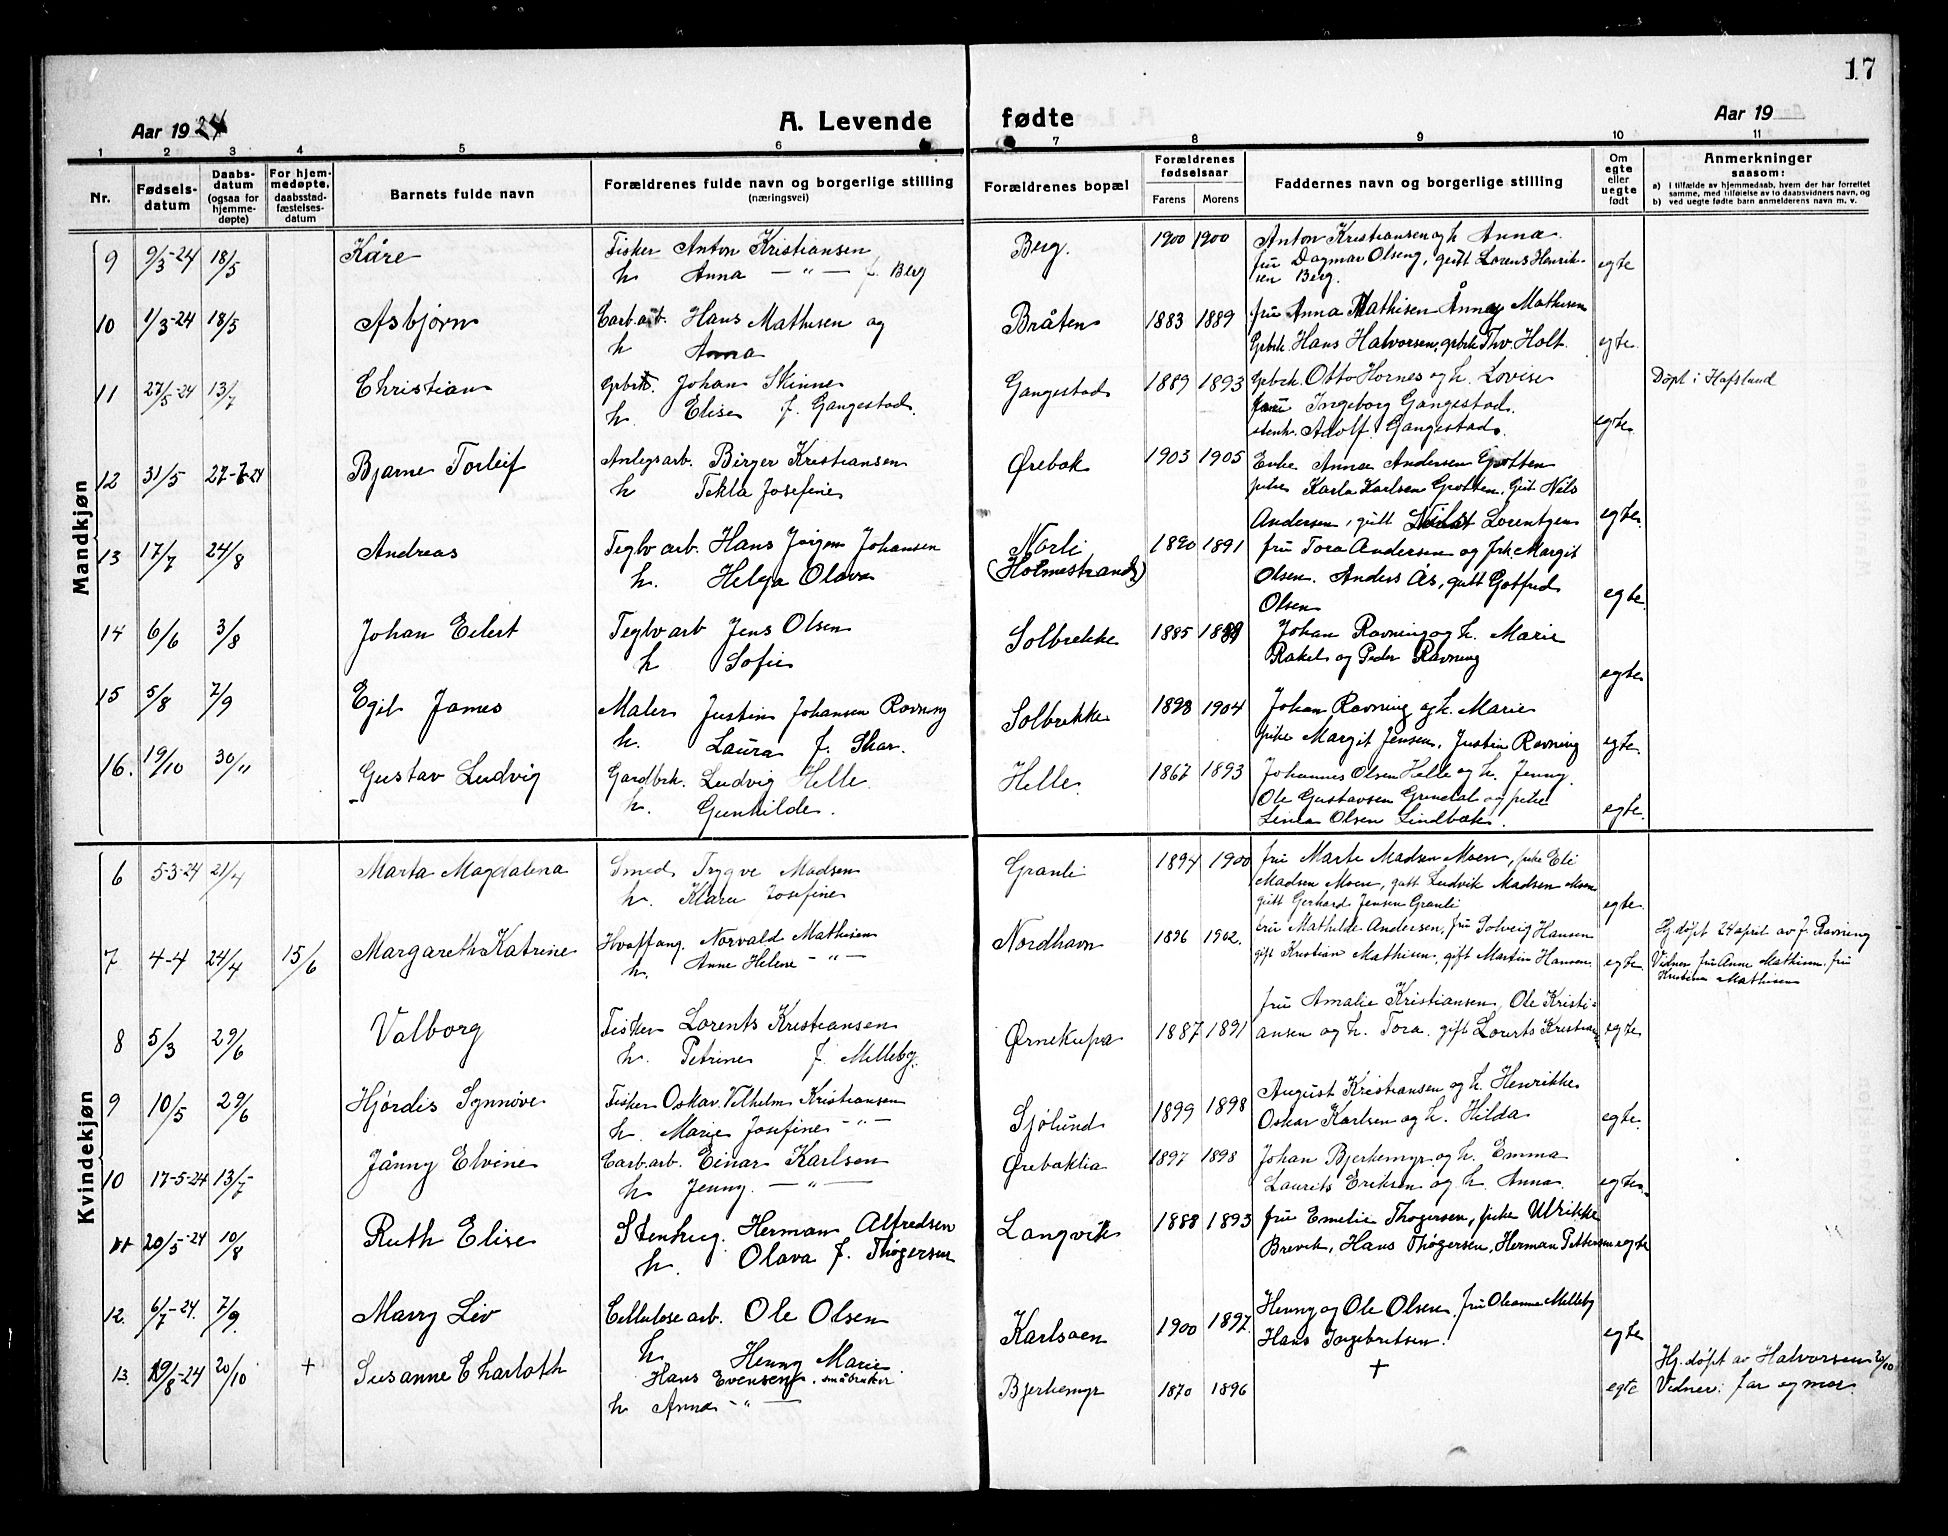 17
Aar 1924
A. Levende
fødte
Aar 19
1 2 3 4 5 6 7 8 9 10 11
Nr.
Fødsels-
datum
Daabs-
datum
(ogsaa for
hjemme-
døpte)
For hjem-
medøpte,
daabsstad-
fæstelses-
datum
Barnets fulde navn
Forældrenes fulde navn og borgerlige stilling
(næringsvei)
Forældrenes bopæl
Forældrenes
fødselsaar
Farens Morens
Faddernes navn og borgerlige stilling
Om
egte
eller
uegte
født
Anmerkninger
saasom:
a) I tilfælde av hjemmedaab, hvem der har forrettet
samme, med tilføielse av to daabsvidners navn, og
b) ved uegte fødte barn anmelderens navn m. v.
Mandkjøn
9 9/3-24 18/5 Kåre Fisker Anton Kristiansen Berg. 1900 1900 Anton Kristiansen og h. Anna.
h Anna —"— f. Berg fru Dagmar Olseng, gutt Lorens Henrik-
sen Berg. egte
10 1/3-24 18/5 Asbjørn Carb.arb. Hans Mathisen og Bråten 1883 1889 fru Anna Mathisen Ånnøy Mathisen
h Anna Gbrk. Hans Halvorsen, gbrk Thv. Holt. egte.
11 27/5-24 13/7 Christian Gbrk. Johan Skinne Gangestad 1889 1893 Gbrk. Otto Hornes og h. Lovise Døpt i Hafslund
h. Elise f. Gangestad. fru Ingeborg Gangestad.
stenh. Adolf Gangestad. egte.
12 31/5 27-7-24 Bjarne Torleif Anlegsarb. Birger Kristiansen Ørebak 1903 1905 Enke Anna Andersen Grotten
h Tekla Josefine pike Karla Karlsen Grotten, Gut Nils
Andersen, gutt Lorentzen egte.
13 17/7 24/8 Andreas Teglv.arb. Hans Jørgen Johansen Norli 1890 1891 fru Tora Andersen og frk Margit
h. Helga Olava (Holmestrand) Olsen. Anders Ås, gutt Gotfred
Olsen egte
14 6/6 3/8 Johan Eilert Teglv arb Jens Olsen Solbrekke 1885 Johan Ravning og h. Marie
h Sofie Rakel og Peder Ravning egte
15 5/8 7/9 Egil James Maler Justin Johansen Ravning Solbrekke 1898 1904 Johan Ravning og h. Marie
h. Laura f. Skar. pike Margit Jensen, Justin Ravning egte.
16. 19/10 30/11 Gustav Ludvig Gardbrk. Ludvig Helle. Helle. 1867 1893 Johannes Olsen Helle og h. Jenny.
h. Gunhilde. Ole Gustavsen Grimdal og pike
Lina Olsen Lindbæk. egte.
Kvindekjøn
6 5-3-24 21/4 Marta Magdalena Smed Trygve Madsen Granli 1894 1900 fru Marte Madsen Moen, pike Eli
h. Klara Josefine Madsen Moen, gutt Ludvik Madsen Moen
gutt Gerhard Jensen Granli egte.
7 4-4 24/4 15/6 Margareth Katrine Hvalfang. Norvald Mathisen Nordhavn 1896 1902. fru Mathilde Andersen, fru Solveig Hansen Hj. døpt 24 april av J. Ravning
h. Anne Helene —"— gift Kristian Mathisen, gift Martin Hansen. egte Vidner fru Anne Mathisen, fru
Kristine Mathisen
8 5/3 29/6 Valborg Fisker Lorents Kristiansen Ørnekupa 1887 1891 fru Amalie Kristiansen, Ole Kristi-
h. Petrine f. Milleby. ansen og h. Tora. gift Lorents Kristian egte
9 10/5 29/6 Hjørdis Synnøve Fisker Oskar Vilhelm Kristiansen Sjølund 1899 1898 August Kristiansen og h. Henrikke
h. Marie Josefine —"— Oskar Karlsen og h. Hilda egte.
10 17-5-24 13/7 Jånny Elvine Carb.arb. Einar Karlsen Ørebaklia 1897 1898 Johan Bjerkemyr og h. Emma
h Jenny. —"— Laurits Eriksen og h. Anna. egte.
11 20/5-24 10/8 Ruth Elise Stenhug. Herman Alfredsen Langvik 1888 1893 fru Emelie Thøgersen, pike Ulrikke
h. Olava f. Thøgersen Brevik, Hans Thøgersen, Herman Pettersen egte
12. 6/7-24. 7/9. Marry Liv Cellulosearb. Ole Olsen Karlsøen 1900 1897. Henny og Ole Olsen, fru Oleanna Milleby
h Henny Marie. Hans Ingebretsen. egte
13. 19/8-24 20/10 + Susanne Charloth Hans Evensen, småbruker Bjerkemyr 1870 1896 + egte Hj. døpt av Halvorsen 20/10
h Anna —"— Vidner: far og mor.